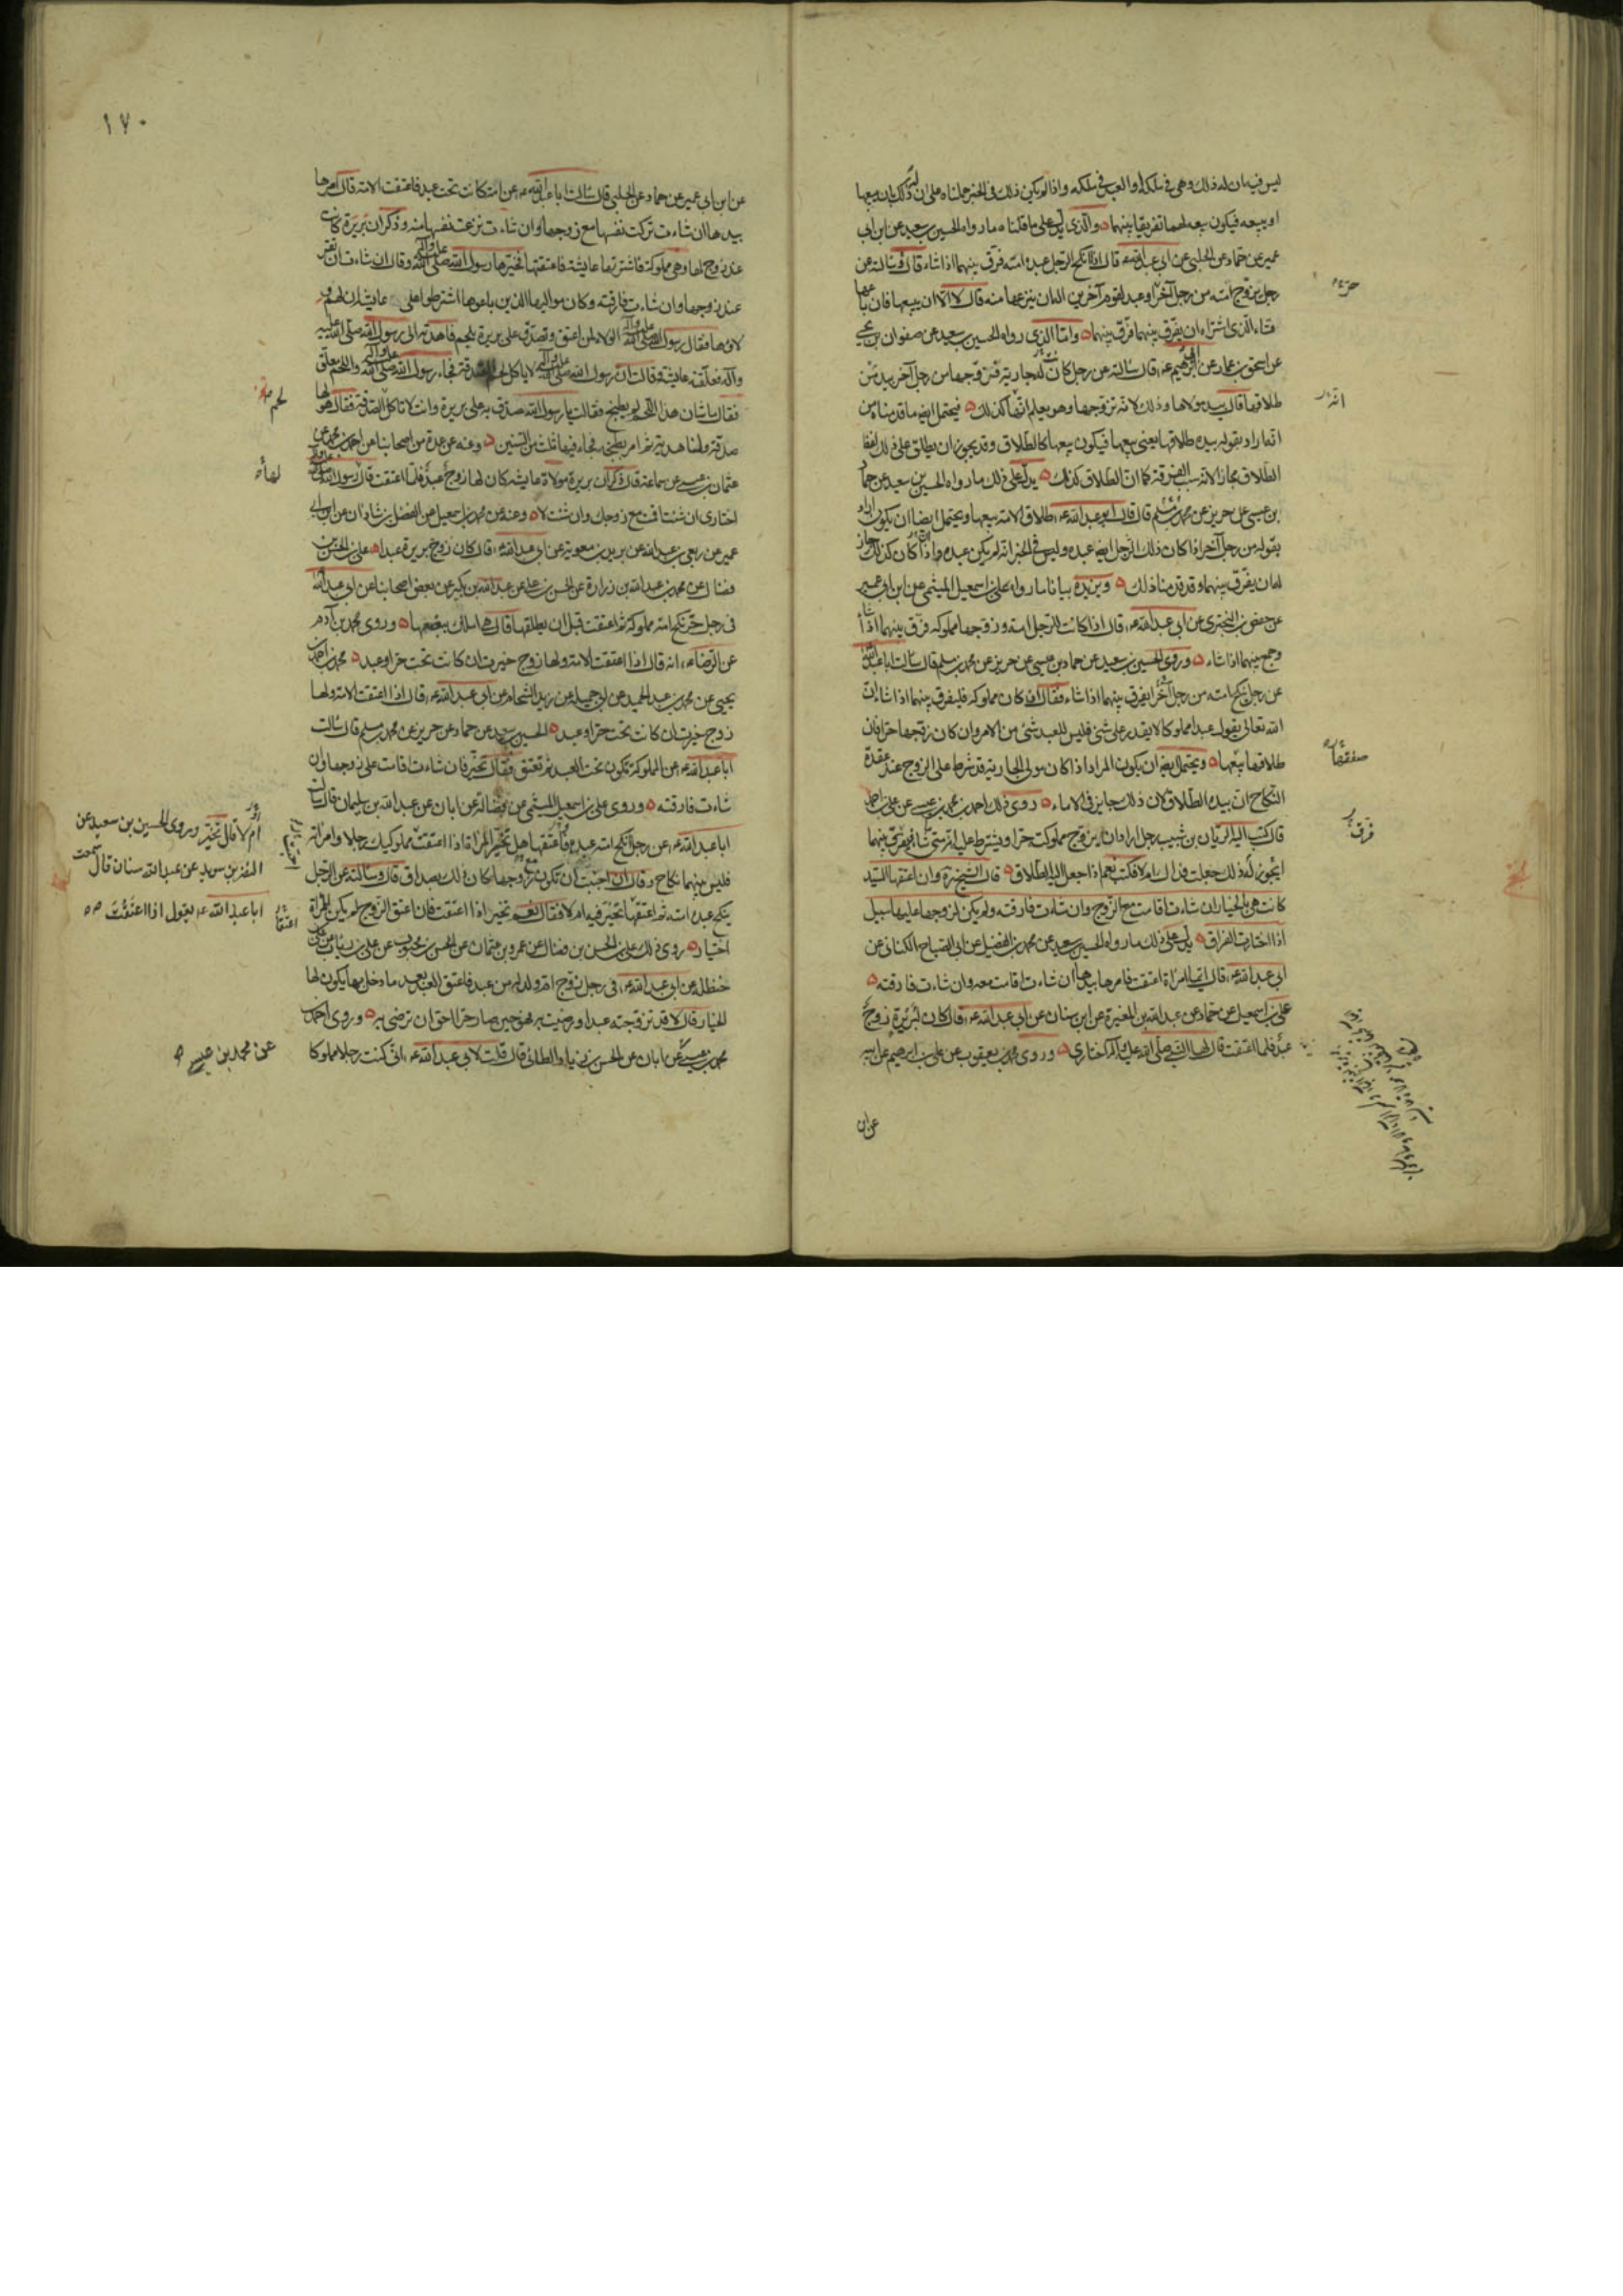 ليس فيه ان له ذلك وهي في ملكه أو العبد في ملكه واذا لم يكن ذلك في الخبر حملناه على ان ذلك بان يبيعها
او يبيعه فيكون بيعه لهما تفريقا بينهما والذي يدل على ما قلناه ما رواه الحسين بن سعيد عن ابن ابي
عمير عن حماد عن الحلبي عن ابي عبد الله ع قال اذا انكح الرجل عبده امته فرق بينهما اذا شاء قال وسالته عن
رجل يزوج امته من رجل آخر او عبد لقوم آخرين اله ان ينزعها منه قال لا الا ان يبيعها فان باعها
فشاء الذي اشتراه ان يفرق بينهما فرق بينهما واما الذي رواه الحسين بن سعيد عن صفوان بن يحيى
عن اسحق بن عمار عن ابي ابرهيم ع قال سالته عن رجل كانت له جارية فزوجها من رجل آخر بيد من
طلاقها قال بيد مولاها وذلك لانه تزوجها وهو يعلم انها كذلك فيحتمل ايضا ما قدمناه من
انه اراد بقوله بيده طلاقها يعني بيعها فيكون بيعها كالطلاق وقد يجوز ان يطلق على ذلك لفظ
الطلاق مجازا لانه سبب الفرقة كما ان الطلاق كذلك يدل على ذلك ما رواه الحسين بن سعيد عن حماد
بن عيسى عن حريز عن محمد بن مسلم قال قال ابو عبد الله ع طلاق الامة بيعها ويحتمل ايضا ان يكون اراد
بقوله من رجل آخر اذا كان ذلك الرجل ايضا عبده وليس في الخبر انه لم يكن عبده واذا كان كذلك جاز
له ان يفرق بينهما وقد قدمنا ذلك ويزيده بيانا ما رواه علي بن اسمعيل الميثمي عن ابن ابي عمير
عن حفص بن البختري عن ابي عبد الله ع قال اذا كانت للرجل امة وزوجها مملوكه فرق بينهما اذا شاء
وجمع بينهما اذا شاء وروى الحسين بن سعيد عن حماد بن عيسى عن حريز عن محمد بن مسلم قال سالت ابا عبد الله
عن رجل ينكح امته من رجل آخر ايفرق بينهما اذا شاء فقال ان كان مملوكه فليفرق بينهما اذا شاء ان
الله تعالى يقول عبدا مملوكا لا يقدر على شيء فليس للعبد شيء من الامر وان كان زوجها حرا فان
طلاقها بيعها ويحتمل ايضا ان يكون المراد اذا كان مولى الجارية قد شرط على الزوج عند عقدة
النكاح ان بيده الطلاق كان ذلك جايز في الاماء روى ذلك احمد بن محمد بن عيسى عن علي بن احمد
قال كتب اليه الريان بن شبيب رجل اراد ان يزوج مملوكته حرا ويشترط عليه انه متى شاء فيفرق بينهما
ايجوز له ذلك جعلت فداك ام لا فكتب نعم اذا جعل اليه الطلاق قال الشيخ ره وان اعتقها السيد
كانت هي بالخيار ان شاءت اقامت مع الزوج وان شاءت فارقته ولم يكن لزوجها عليها سبيل
اذا اختارت الفراق يدل على ذلك ما رواه الحسين بن سعيد عن محمد بن الفضيل عن ابي الصباح الكناني عن
ابي عبد الله ع قال ايما امراة اعتقت فامرها بيدها ان شاءت اقامت معه وان شاءت فارقته
علي بن اسمعيل عن حماد عن عبد الله بن المغيرة عن ابن سنان عن ابي عبد الله ع قال كان لبريرة زوج
عبد فلما اعتقت قال لها النبي صلى الله عليه وآله اختاري وروى محمد بن يعقوب عن علي بن ابرهيم عن ابيه
عن ابن
حرة
انه
صفقتها
فرق
١٧٠
عن ابن ابي عمير عن حماد عن الحلبي قال سالت ابا عبد الله ع عن امة كانت تحت عبد فاعتقت الامة قال امرها
بيدها ان شاءت تركت نفسها مع زوجها وان شاءت نزعت نفسها منه وذكر ان بريرة كانت
عند زوج لها وهي مملوكة فاشترتها عايشة فاعتقتها فخيرها رسول الله صلى الله عليه وآله وقال ان شاءت ان تقر
عند زوجها وان شاءت فارقته وكان مواليها الذين باعوها اشترطوا على عايشة ان لهم
ولاؤها فقال رسول الله صلى الله عليه وآله الولاء لمن اعتق وتصدق على بريرة بلحم فاهدته الى رسول الله صلى الله عليه
وآله فعلقته عايشة وقالت ان رسول الله صلى الله عليه وآله لا ياكل الصدقة فجاء رسول الله صلى الله عليه وآله واللحم معلق
فقال ما شان هذا اللحم لم يطبخ فقالت يا رسول الله صدق به على بريرة وانت لا تاكل الصدقة فقال هو لها
صدقة ولنا هدية ثم امر بطبخه فجاء فيها ثلث من السنن وعنه عن عدة من اصحابنا عن احمد بن محمد عن
عثمان بن عيسى عن سماعة قال ذكر ان بريرة مولاة عايشة كان لها زوج عبد فلما اعتقت قال رسول الله صلى الله عليه وآله
اختاري ان شئت اقمت مع زوجك وان شئت لا وعنه عن محمد بن اسمعيل عن الفضل بن شاذان عن ابن ابي
عمير عن ربعي بن عبد الله عن بريد بن معوية عن ابي عبد الله ع قال كان زوج بريرة عبدا علي بن الحسن بن
فضال عن محمد بن عبد الله بن زرارة عن الحسن بن علي عن عبد الله بن بكير عن بعض اصحابنا عن ابي عبد الله
في رجل حر نكح امة مملوكة ثم اعتقت قبل ان يطلقها قال هي املك ببضعها وروى محمد بن آدم
عن الرضا ع انه قال اذا اعتقت الامة ولها زوج خيرت ان كانت تحت حر او عبد محمد بن احمد بن
يحيى عن محمد بن عبد الحميد عن ابي جميلة عن زيد الشحام عن ابي عبد الله ع قال اذا اعتقت الامة ولها
زوج خيرت ان كانت تحت حر او عبد الحسين بن سعيد عن حماد عن حريز عن محمد بن مسلم قال سالت
ابا عبد الله ع عن المملوكة تكون تحت العبد ثم تعتق فقال تخير فان شاءت اقامت على زوجها وان
شاءت فارقته وروى علي بن اسمعيل الميثمي عن فضالة عن ابان عن عبد الله بن سليمان قال سالت
ابا عبد الله ع عن رجل انكح امته عبده فاعتقها هل تخير المراة اذا اعتقت مملوكيك رجلا وامراته
فليس بينهما نكاح وقال ان احببت ان تكون زوجها كان ذلك بصداق قال وسالته عن الرجل
ينكح عبده امته ثم اعتقها تخير فيه ام لا فقال نعم تخير اذا اعتقت فان اعتق الزوج لم يكن للمراة
اختيار روى ذلك علي بن الحسن بن فضال عن عمرو بن عثمان عن الحسن بن محبوب عن علي بن رئاب عن علي بن
حنظلة عن ابي عبد الله ع في رجل زوج ام ولد له من عبد فاعتق العبد بعد ما دخل بها يكون لها
الخيار قال لا قد تزوجته عبدا ورضيت به فهو حين صار حرا احق ان ترضى به وروى احمد بن
محمد بن عيسى عن ابان عن الحسن بن زياد الطائي قال قلت لابي عبد الله ع اني كنت رجلا مملوكا
لحم
لها
ام لا قال تخير وروى الحسين بن سعيد عن
النضر بن سويد عن عبد الله سنان قال سمعت
ابا عبد الله ع يقول اذا اعتقت
عن محمد بن عيسى